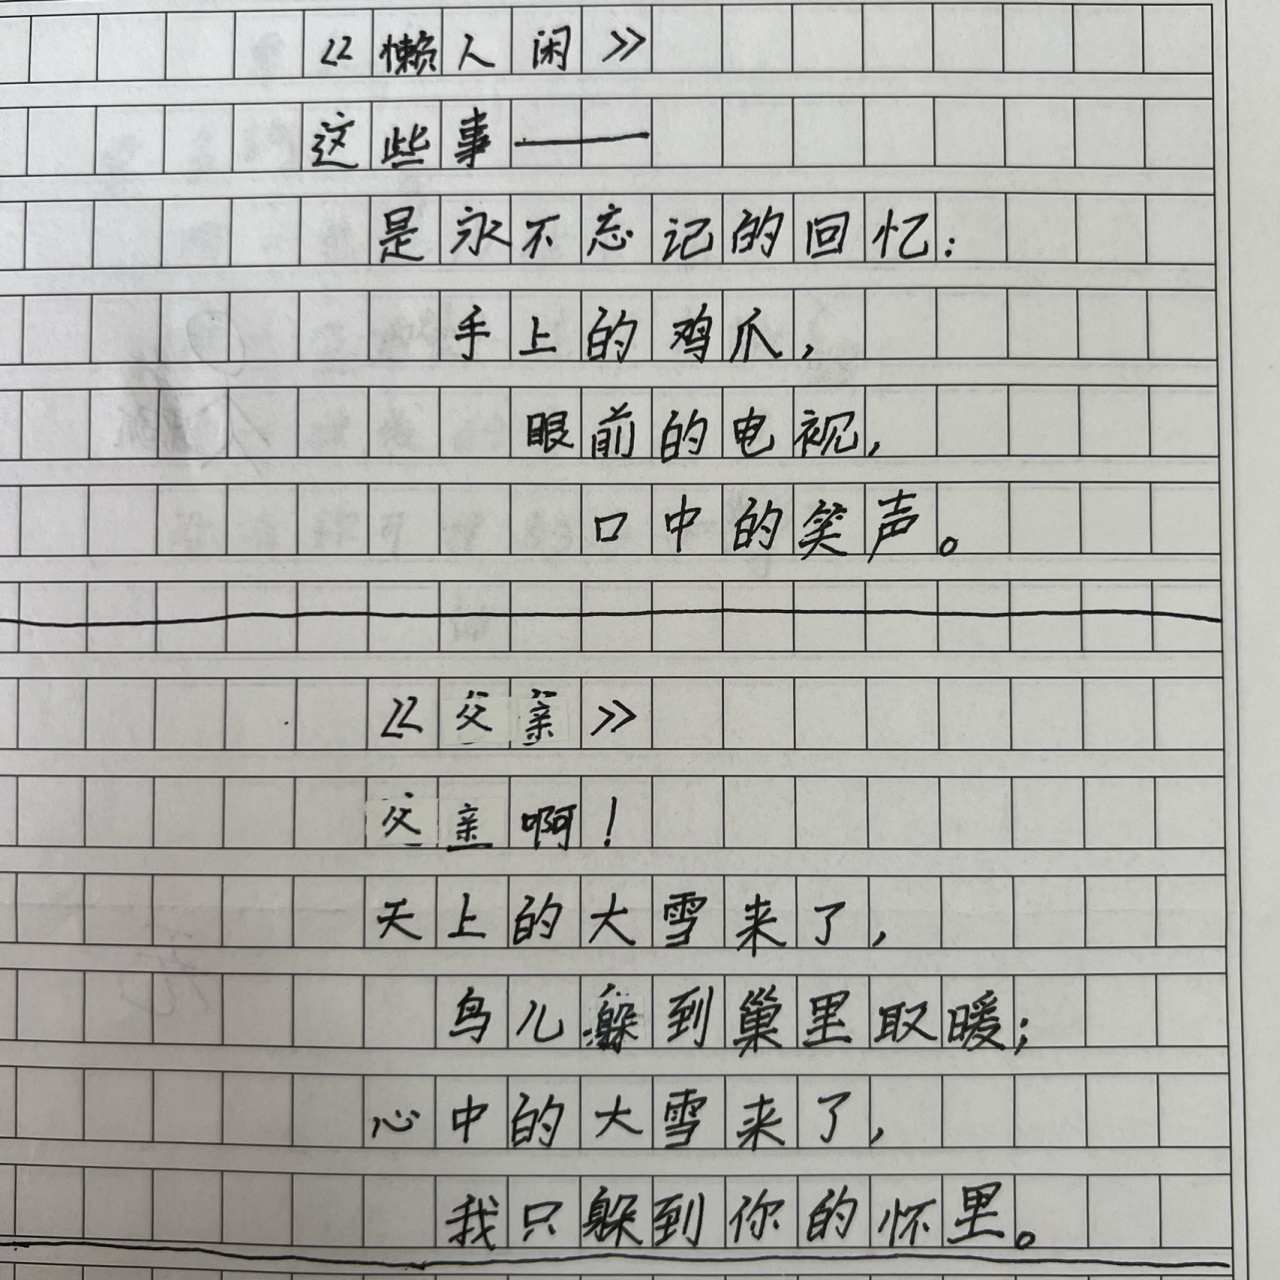 《懒人闲》
这些事——
是永不忘记的回忆:
手上的鸡爪,
眼前的电视,
口中的笑声。
《父亲》
父亲啊!
天上的大雪来了,
鸟儿躲到巢里取暖;
心中的大雪来了,
我只躲到你的怀里。